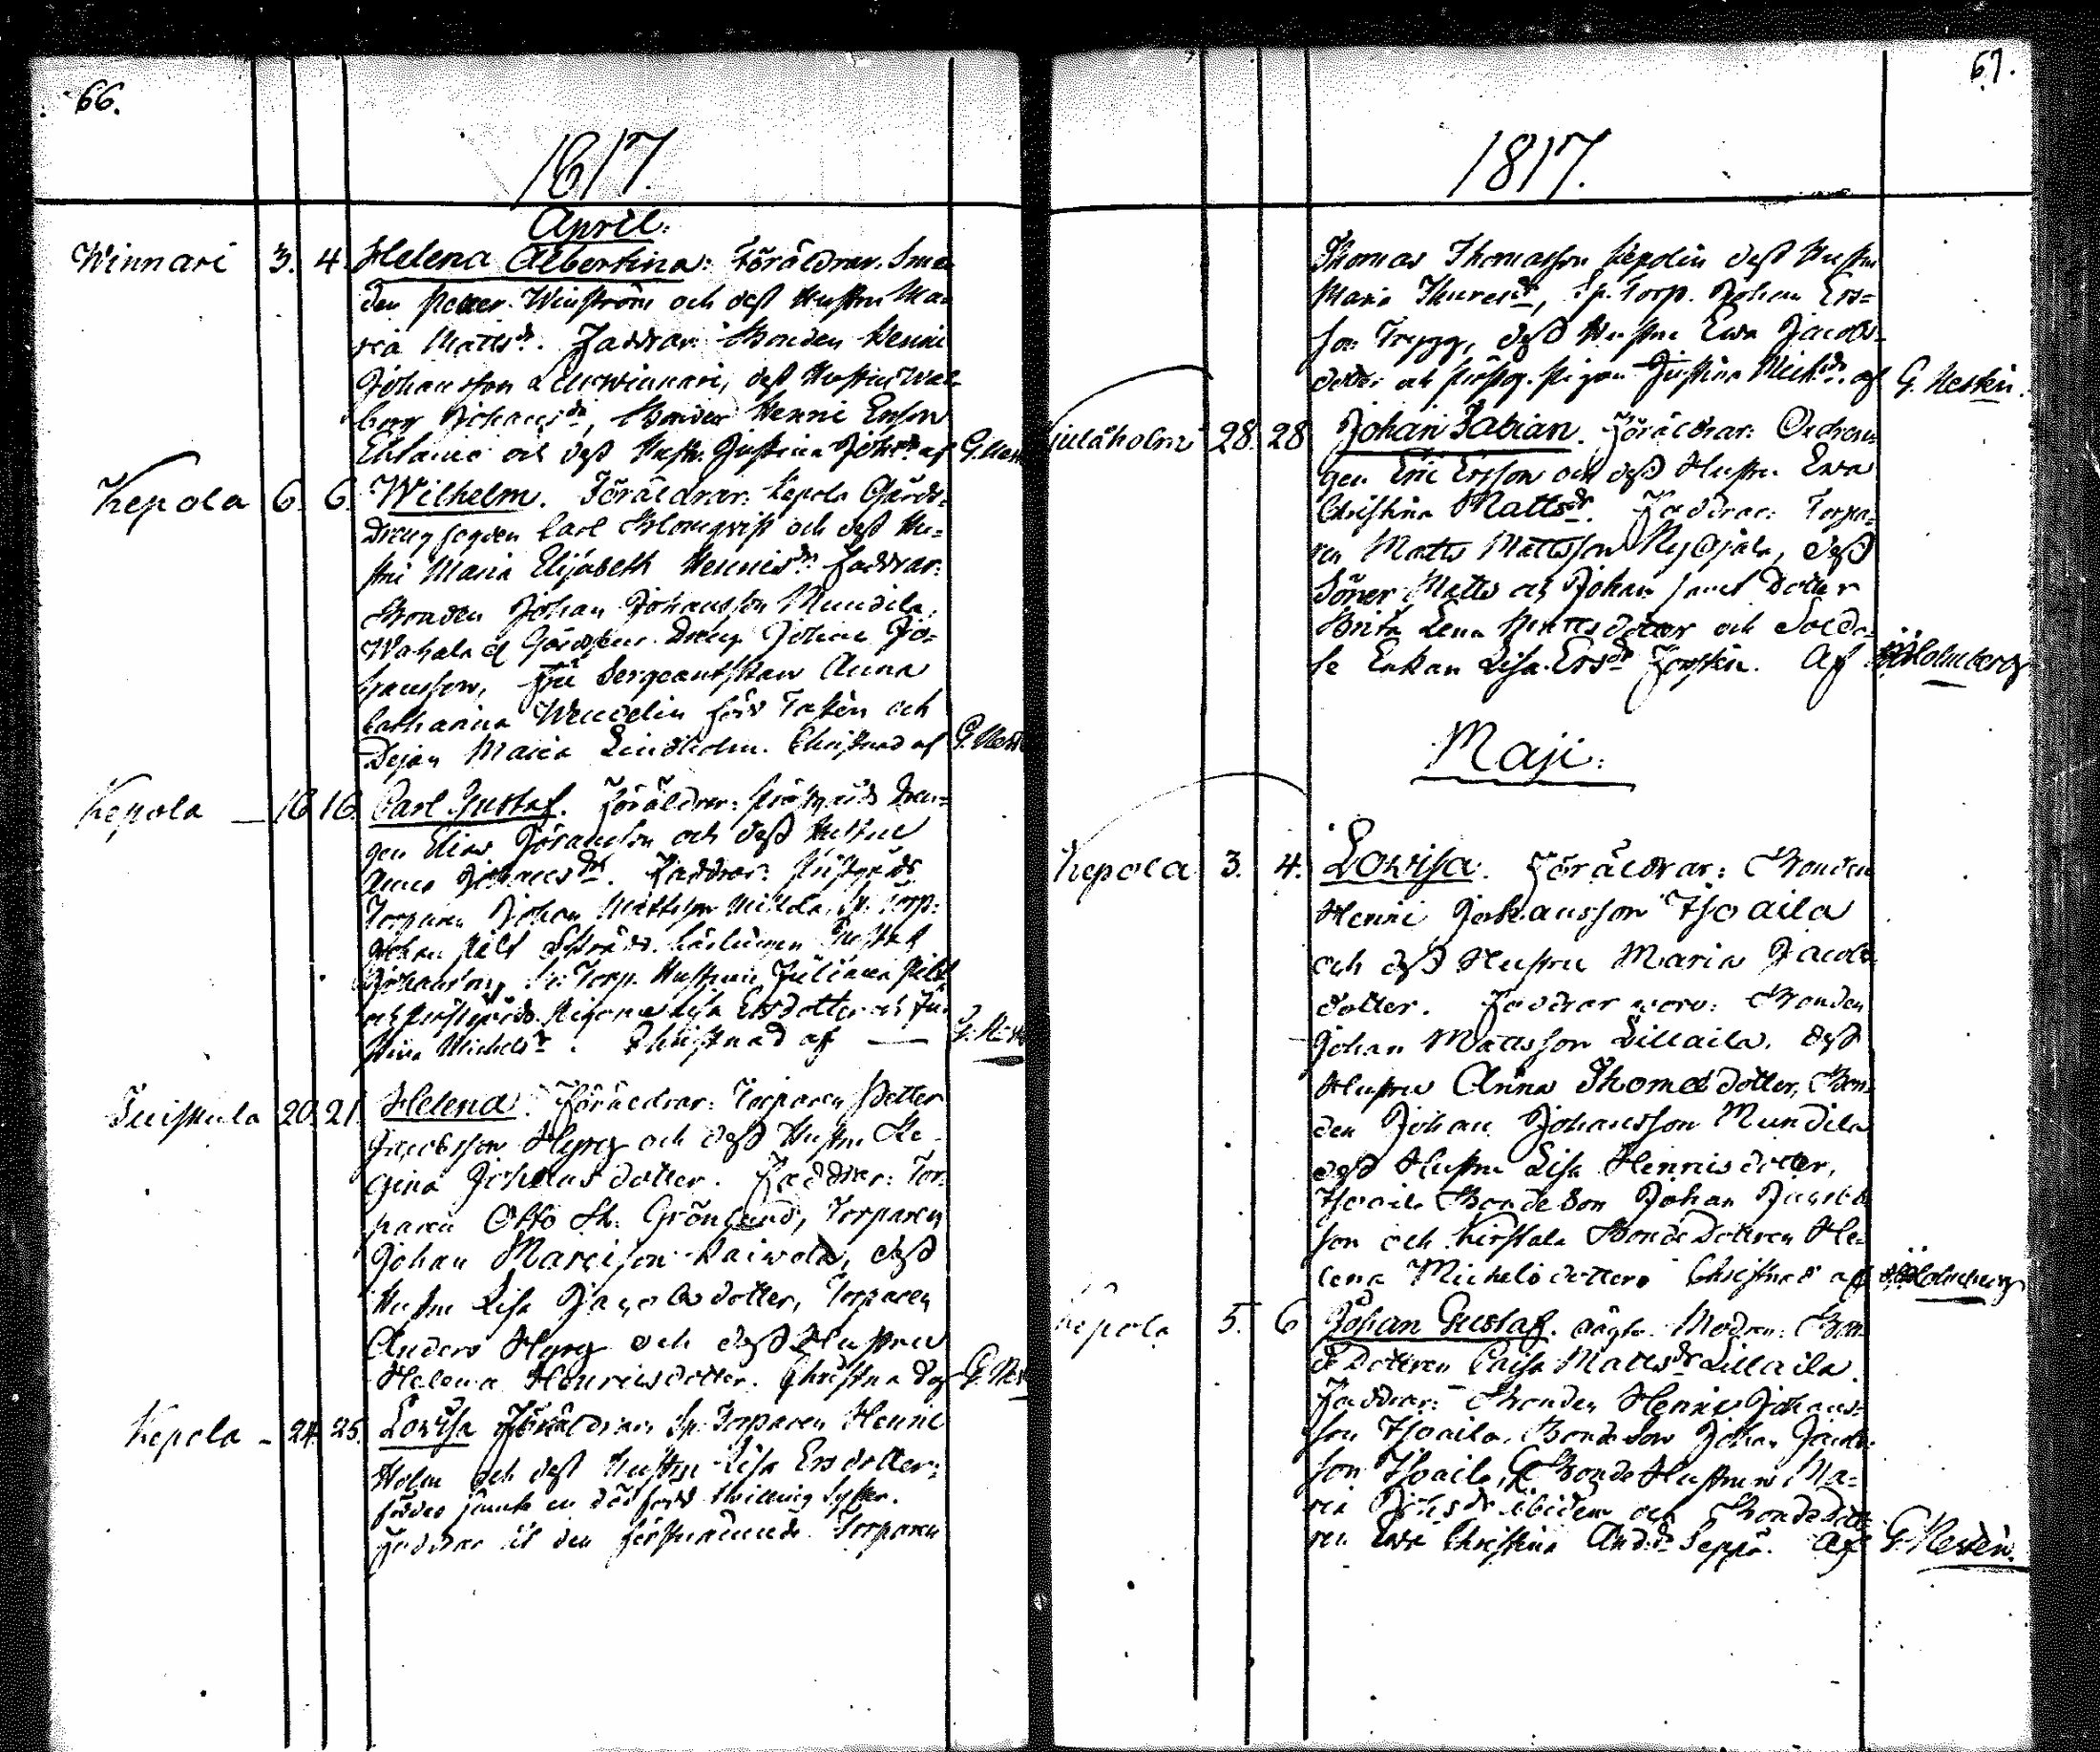 66.
1817.
April.
Winnari 3. 4. Helena Albertina: Föräldrar: Sme-
den Petter Winström och dess Hustru Ma-
ria Mattsdr. Faddrar: Bonden Henric
Johansson Lillwinnari, dess Hustru Wal-
borg Johansdr, Bonden Henric Ersson
och dess Hustr. Justina Johsdr af G. Nest
Kepola 6. 6. Wilhelm. Föräldrar: Kepola Gårds-
dreng fogden Carl Blomqvist och dess Hu-
stru Maria Elisabeth Henricsdr. Faddrar:
Bonden Johan Johansson Mundila,
Wahala Gårdsens Dreng Johan Jo-
hansson, Sergeantskan Anna
Catharina Wendelin född Tasten och
Dejan Maria Lindholm. Christnad af G. Nest
Kepola 16 16. Carl Gustaf. Föräldrar: Prästgårds Dren-
gen Elias Göransson och dess Hustru
Anna Johansdr. Faddrar: Prästgårds
Torparen Johan Mattsson Sp. Torp.
Johan Pilt Gustaf
Johansson, Sp. Torp. Hustrun Juliana Pilt
och Prästgårds Pigorna Lisa Ersdotter och Ju-
stina Michelsdr. Christnad af — G. Nest
Tuiskula 20. 21. Helena. Föräldrar: Torparen Petter
Jacobsson Hyrg och dess Hustru Re-
gina Johansdotter. Faddrar: Tor-
paren Otto Fr. Grönlund, Torparen
Johan Marcisson Raiwola, dess
Hustru Lisa Jacobsdotter, Torparen
Anders Hyrg och dess Hustru
Helena Henricsdotter. Christnad af G. Nest
Kepola - 24. 25. Lovisa Föräldrar: Sp. Torparen Henric
Holm och dess Hustru Lisa Ersdotter;
föddes jämte en död född twilling syster.
Faddrar åt den förstnämnde Torparen
67.
1817.
Thomas Thomasson Kepolin dess Hustru
Maria Thuresdr, Sp. Torp. Johan Ers-
son Trygg, dess Hustru Ewa Jacobs-
dotter och Prästg. Pigan Justina Michsdr. af G. Nestin.
juläholm 28. 28 Johan Fabian. Föräldrar: Ordren-
gen Eric Ersson och dess Hustru Ewa
Christina Mattsdr. Faddrar: Torpa-
ren Matts Mattsson Myllyjala, dess
Söner Matts och Johan samt Dotter
Brita Lena Mattsdotter och Solda-
te Enkan Lisa Ersdr Forsten. Af Holmberg
Maji.
Kepola 3. 4. Lovisa. Föräldrar: Bonden
Henric Johansson Isoaila
och dess Hustru Maria Jacobs-
dotter. Faddrar woro: Bonden
Johan Mattsson Lillaila, dess
Hustru Anna Thomasdotter, Bon-
den Johan Johansson Mundila
dess Hustru Lisa Henricsdotter,
Isoaila Bonde Son Johan Jacobs-
son och Kirstala Bonde Dottren He-
lena Michelsdotter. Christnad af Holmberg
Kepola 5. 6 Johan Gustaf. oägta. Modren: Bon-
de Dottren Caisa Mattsdr Lillaila.
Faddrar: Bonden Henric Johans-
son Isoaila, Bonde Son Johan Jacobs-
son Isoaila, Bonde Hustrun Ma-
ria Johsdr ibidem och Bonde Dott-
ren Ewa Christina Andsdr Seppä. Af G. Nestin.